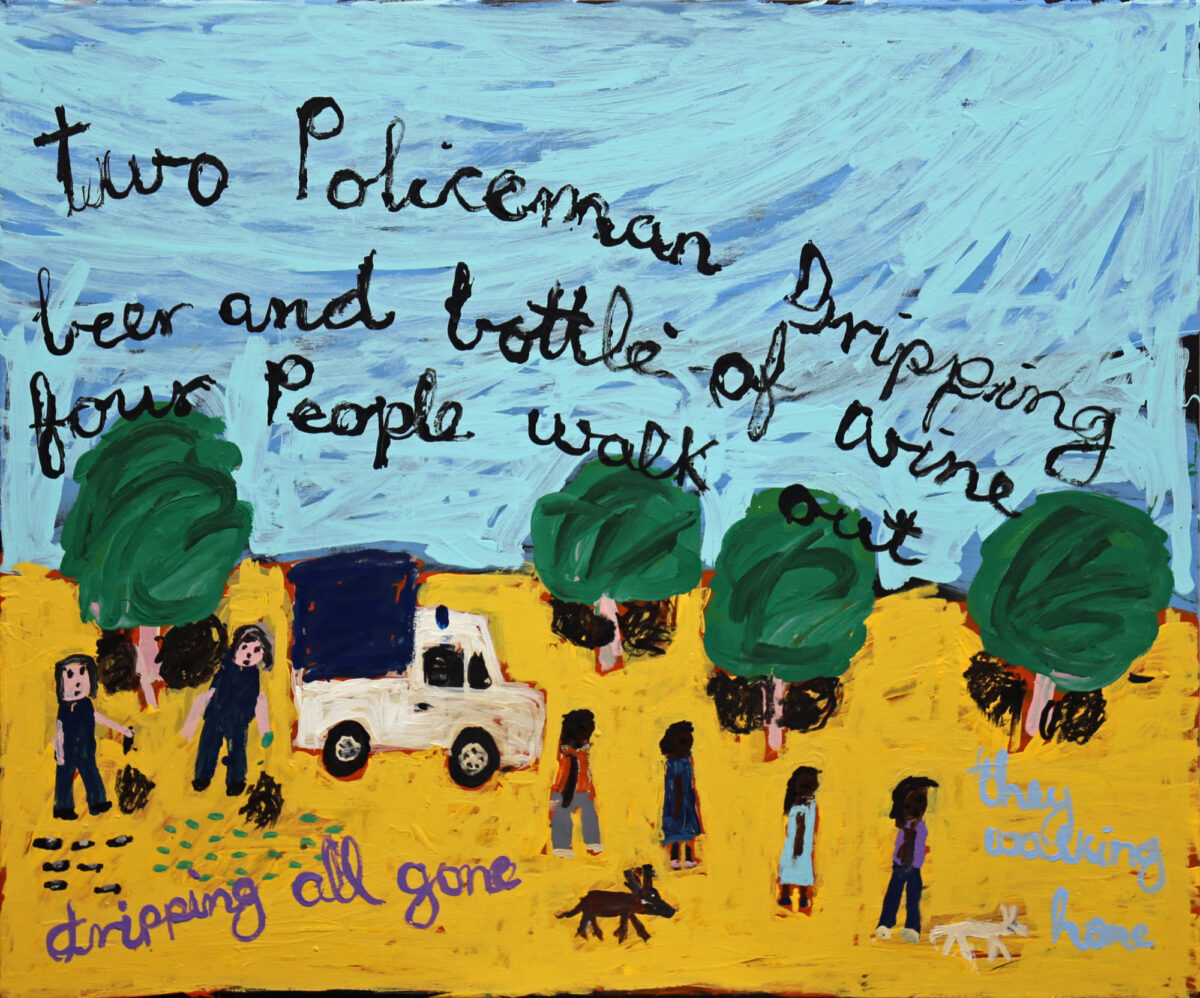 two Policeman Dripping
beer and bottle of wine
four People walk out
they
walking
home
dripping all gone